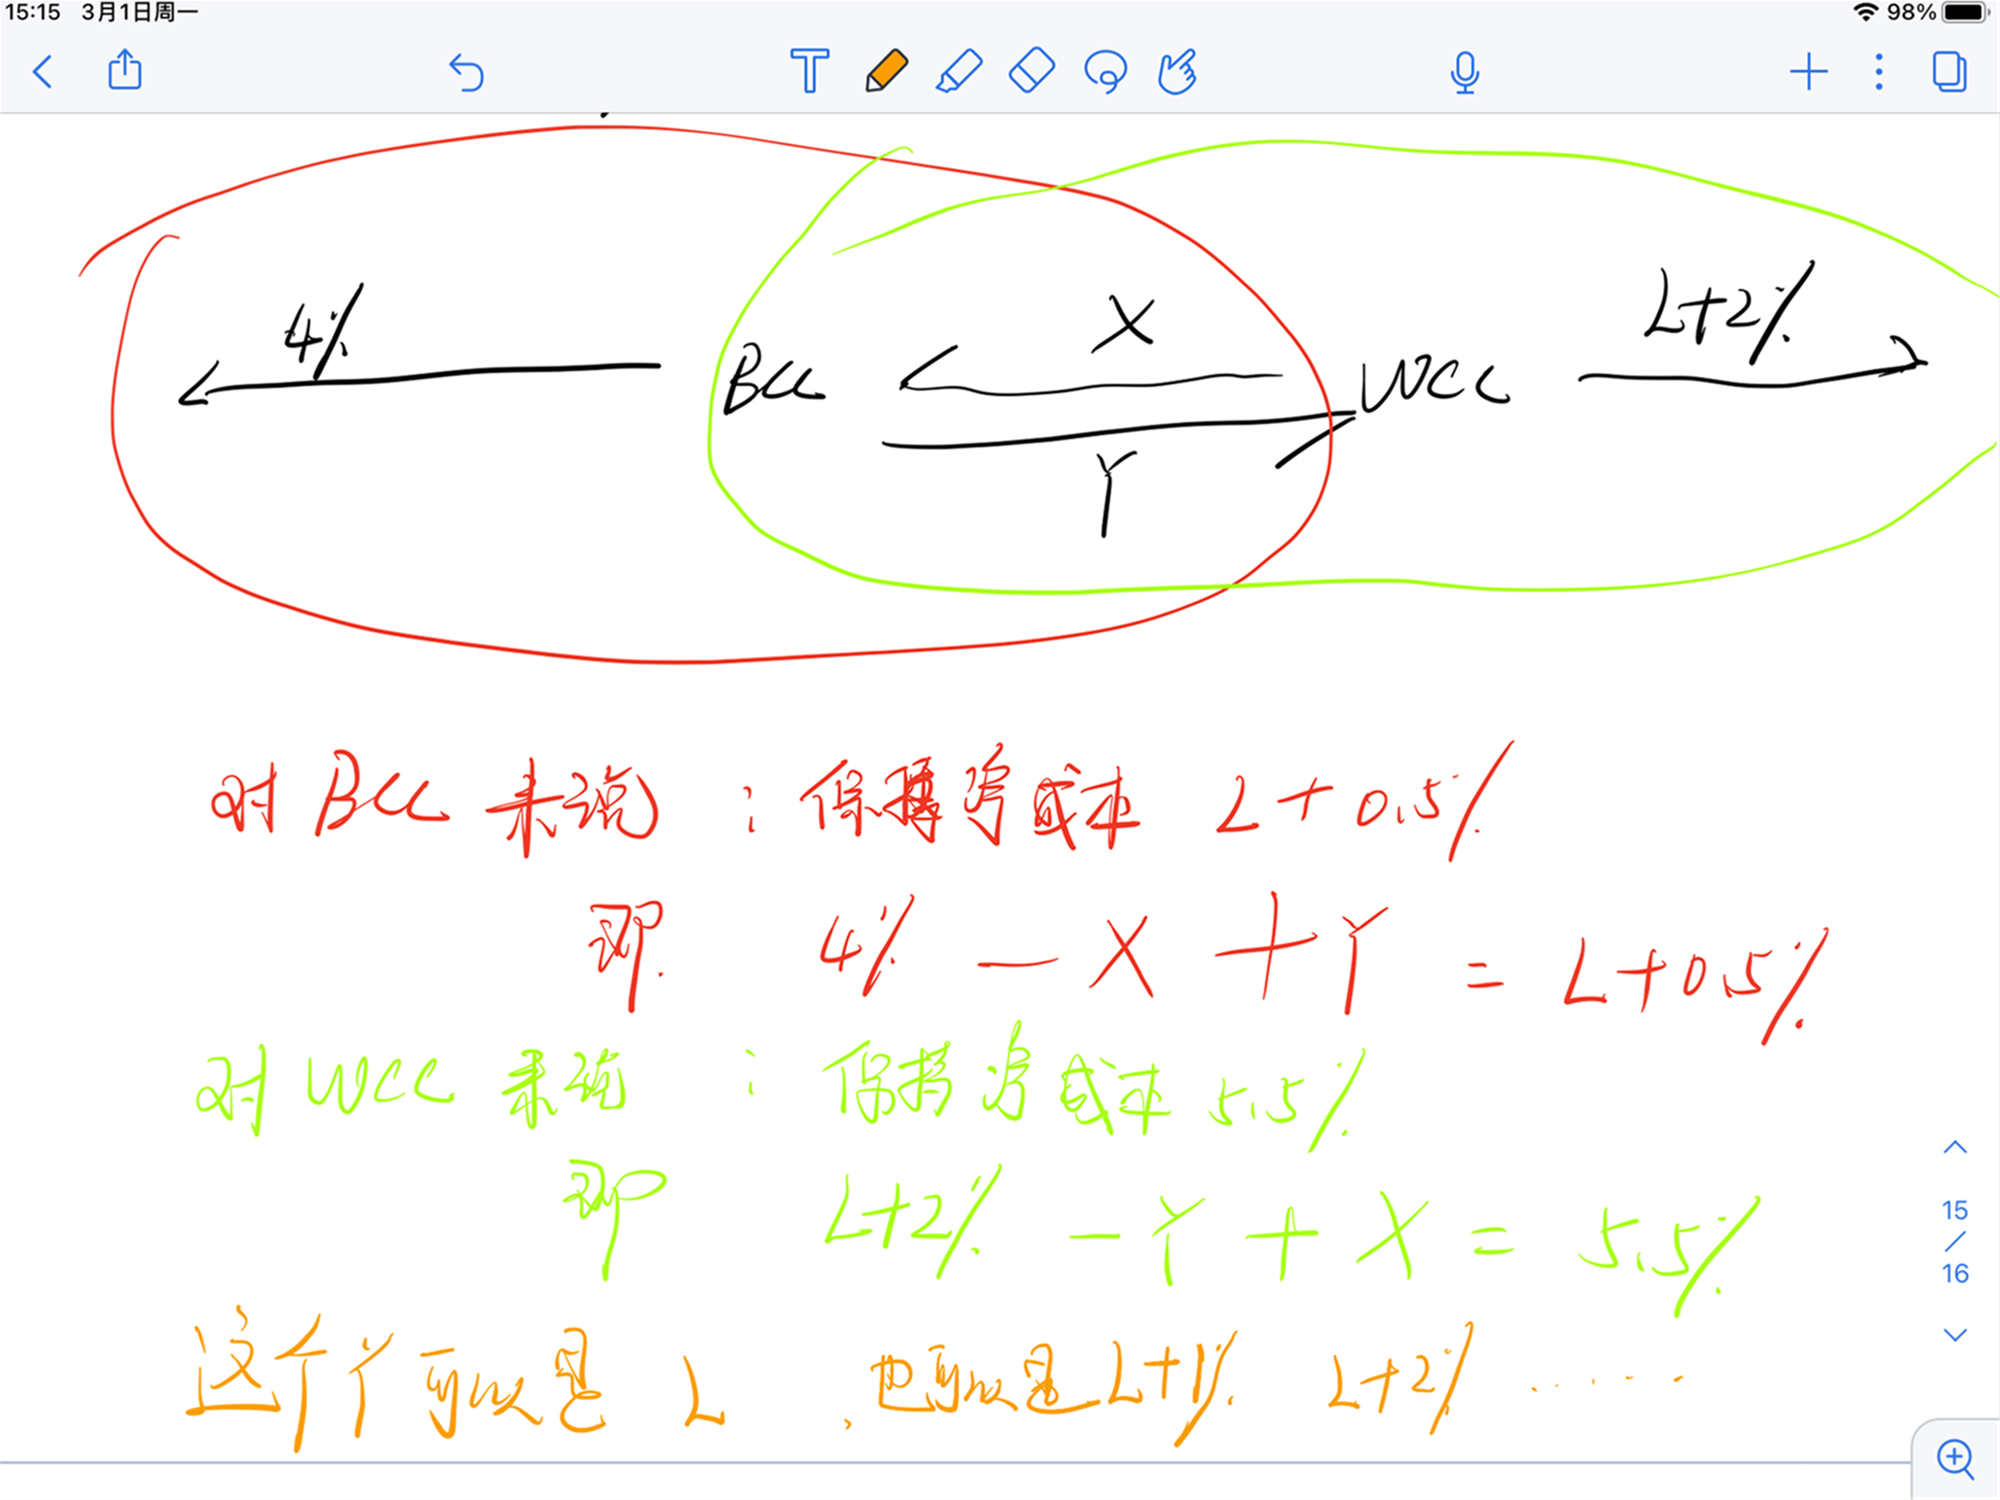 15:15 3月1日周一 98%
4% X L+2%
BCC WCC
Y
对BCC来说：保持总成本 L+0.5%
即 4% - X + Y = L+0.5%
对WCC来说：保持总成本 5.5%
即 L+2% - Y + X = 5.5%
这个Y可以是 L，也可以是L+1% L+2% ......
15
/
16